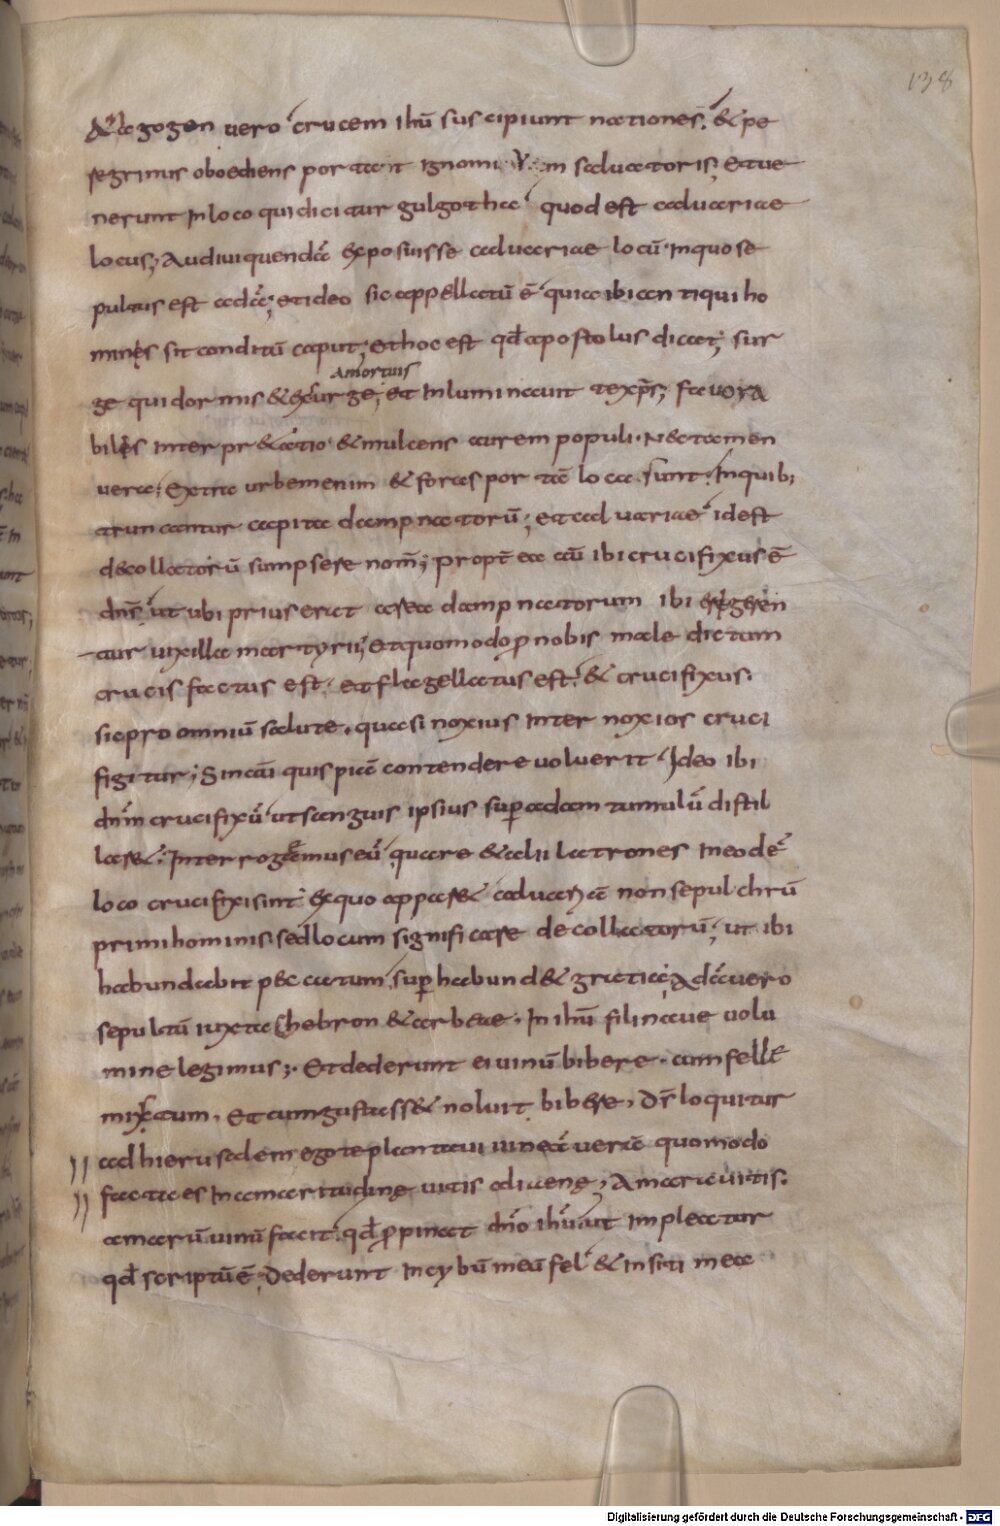 138
& legogen uero crucem ihũ suscipiunt nationes. & pe
regrinus oboediens portat ignomi am saluatoris; Et ue
nerunt in loco qui dicitur gulgotha quod est caluariae
locus; Audiui quendã exposuisse caluariae locũ. in quo se
pultus est adã; et ideo sic appellatũ ẽ quia ibi antiqui ho
minis sit conditũ caput; et hoc est qd̃ apostolus dicat; sur
Amortuis
ge qui dormis & exurge; et inluminauit te xp̃s; Fauora
bilis interpr&atio & mulcens aurem populi. N& tamen
uera; Extra urbem enim & foras portã loca sunt. In quibi
truncantur capita dampnatorũ; et caluariae id est
decollatorũ sumpsere nom̃; propt̃ ea aũ ibi crucifixus ẽ
dñs. ut ubi prius erat area dampnatorum ibi erigeren
tur uixilla martyrii; Et quomodo p nobis maledictum
crucis factus est. et flagellatus est. & crucifixus.
sic pro omniũ salute. quasi noxius inter noxios cruci
figitur; Sin aũ quispiã contendere uoluerit ideo ibi
dñm crucifixũ ut sanguis ipsius sup adam tumulũ distil
lar&. Interrogemus eũ quare & alii latrones in eodẽ
loco crucifixi sint; ex quo appar& caluariã non sepulchrũ
primi hominis sed locum significare decollatorũ; ut ibi
habundabit peccatum sup habund& gratia; Adã uero
sepultũ iuxta Chebron & arbeae. In ihũ filinaue uolu
mine legimus;. Et dederunt ei uinũ bibere. cum felle
mixtum. Et cum gustass& noluit bibere. Dr̃ loquitur
ad hierusalem ego te plantaui uineã uerã quomodo
facta es in amaritudine uitis alienę; Amara uitis.
amarũ uinũ facit. qd̃ p pinat dño ihũ. ut impleatur
qd̃ scriptũ ẽ; Dederunt in cybũ meũ fel & in siti mea
Digitalisierung gefördert durch die Deutsche Forschungsgemeinschaft - DFG